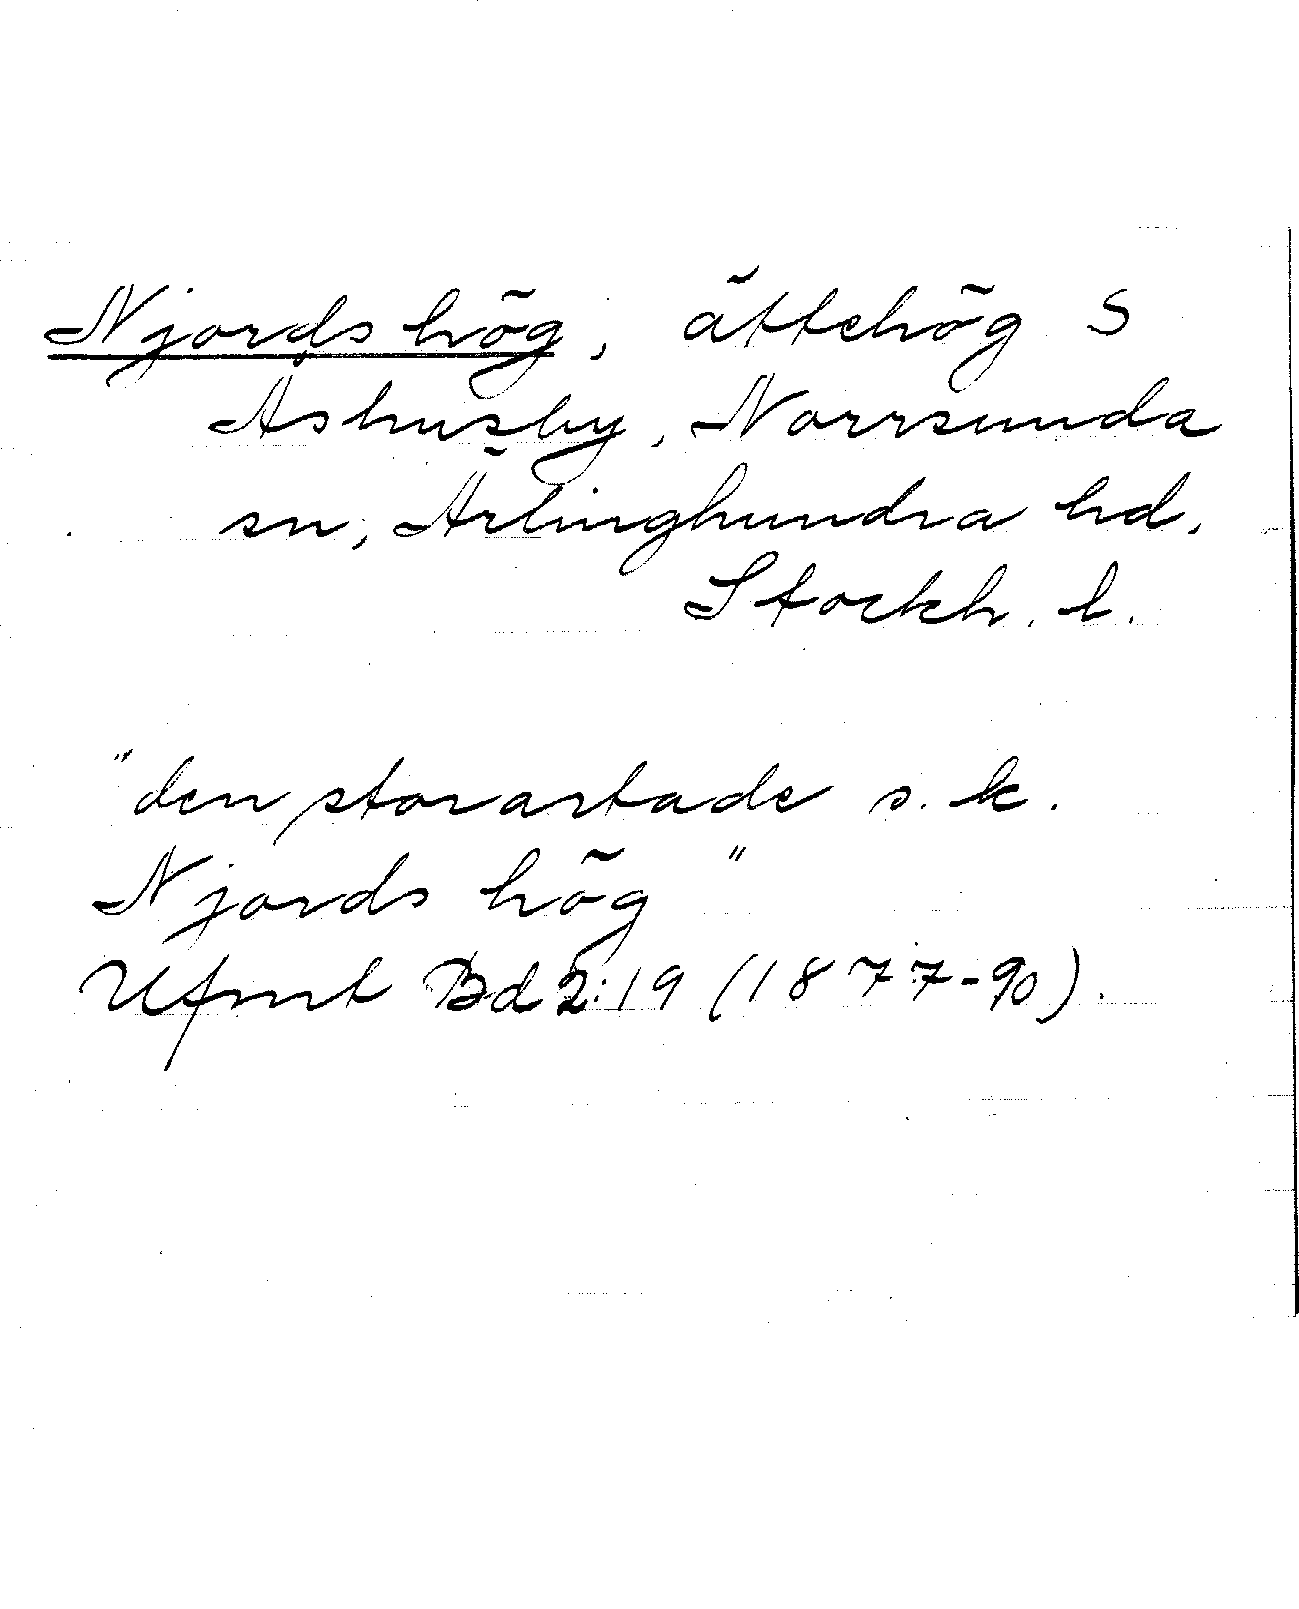 Njords hög, ättehög S
Åshusby, Norrsunda
sn, Ärlinghundra hd,
Stockh. l.
"den storartade s. k.
Njords hög"
Ufmt Bd 2:19 (1877-90).